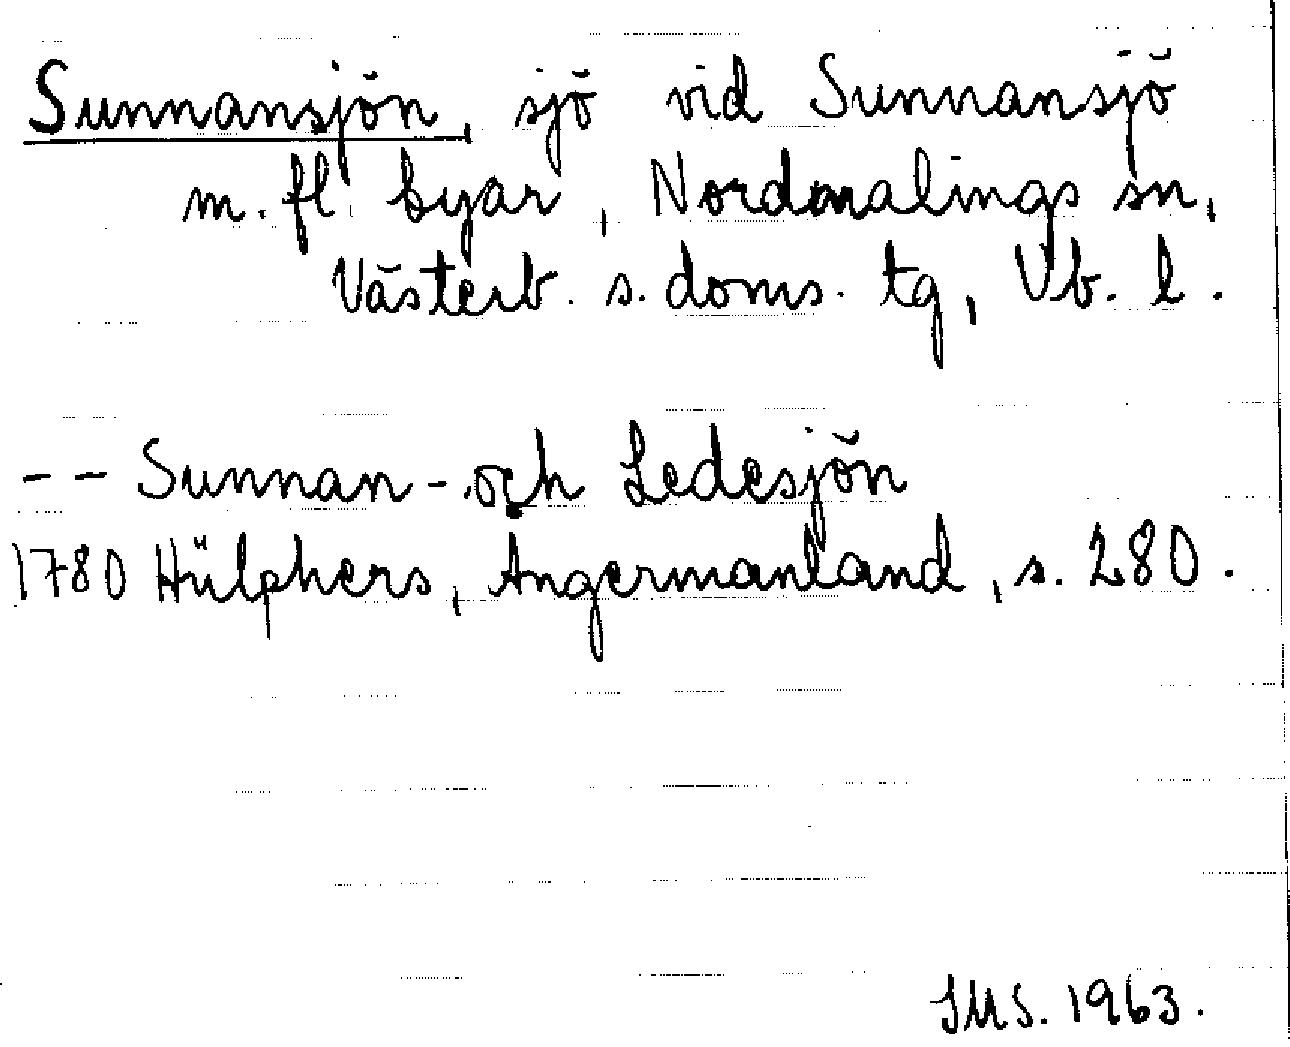 Sunnansjön, sjö vid Sunnansjö
m. fl. byar, Nordmalings sn,
Västerb. s. doms. tg, Vb. l.
-- Sunnan- och Ledesjön
1780 Hülphers, Angermanland, s. 280.
SMS. 1963.